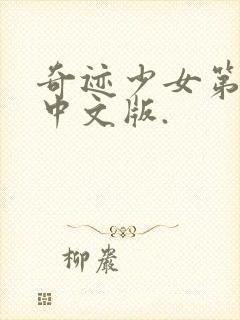 奇迹少女第
中文版.
柳岩